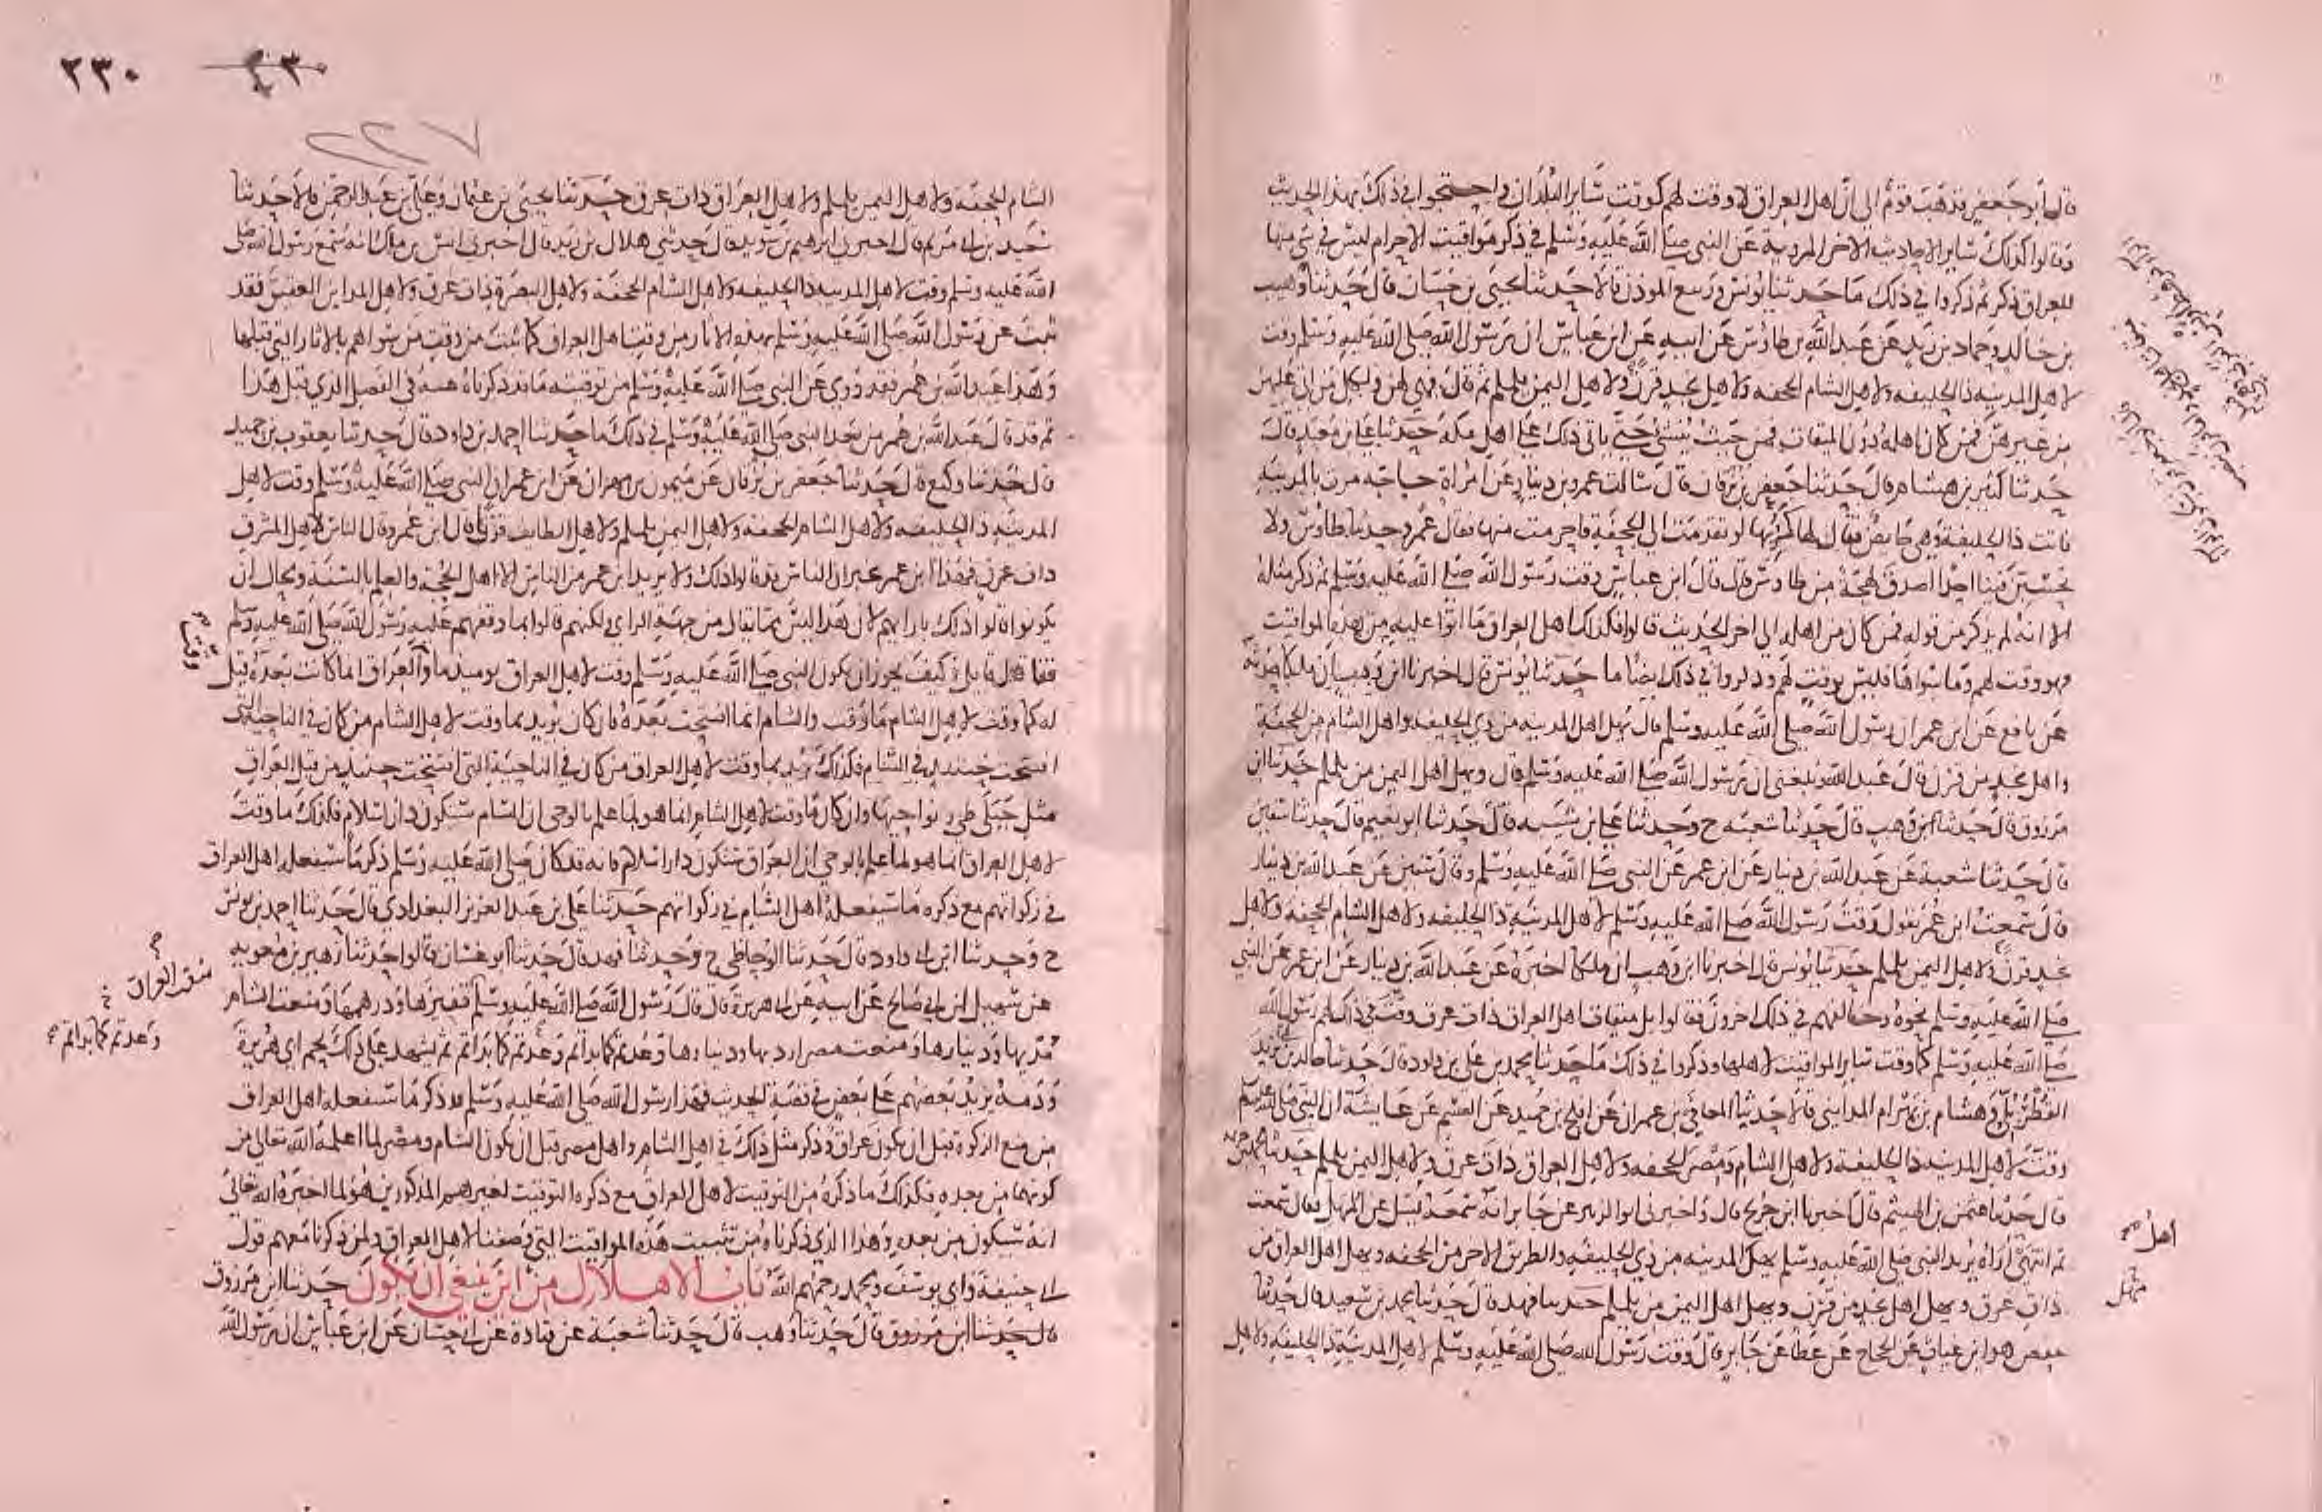 قال أبو جعفر فذهب قوم إلى أن أهل العراق لا وقت لهم كوقت سائر البلدان واحتجوا في ذلك بهذا الحديث
وقالوا كذلك سائر الاحاديث الاخر المروية عن النبي صلى الله عليه وسلم في ذكر مواقيت الاحرام ليس في شي منها
للعراق ذكر ثم ذكروا في ذلك ما حدثنا يونس وربيع الموذن قالا حدثنا يحيى بن حسان قال حدثنا وهيب
بن خالد وحماد بن زيد عن عبد الله بن طاوس عن ابيه عن ابن عباس ان رسول الله صلى الله عليه وسلم وقت
لاهل المدينة ذا الحليفه ولاهل الشام الجحفه ولاهل نجد قرن ولاهل اليمن يلملم ثم قال فهي لهن ولكل من اتى عليهن
من غيرهن فمن كان اهله دون الميقات فمن حيث ينشئ حتى ياتي ذلك على اهل مكة حدثنا علي بن معبد قال
حدثنا كثير بن هشام قال حدثنا جعفر بن برقان قال سالت عمرو بن دينار عن امراة حاجه مرت بالمدينة
فاتت ذا الحليفة وهي حايض فقال لها لو تقدمت الى الجحفة فاحرمت منها فقال عمرو حدثنا طاوس ولا
تحسبن فينا احدا اصدق لهجة من طاوس قال قال ابن عباس وقت رسول الله صلى الله عليه وسلم ثم ذكر مثله
الا انه لم يذكر من قوله فمن كان من اهله الى اخر الحديث قالوا فكذلك اهل العراق ما اتوا عليه من هذه المواقيت
فهو وقت لهم وما سواها فليس بوقت لهم وذكروا في ذلك ايضا ما حدثنا يونس قال اخبرنا ابن وهب ان ملكا حدثه
عن نافع عن ابن عمر ان رسول الله صلى الله عليه وسلم قال يهل اهل المدينه من ذي الحليفه واهل الشام من الجحفة
واهل نجد من قرن قال عبد الله وبلغني ان رسول الله صلى الله عليه وسلم قال ويهل اهل اليمن من يلملم حدثنا ابن
مرزوق قال حدثنا ابن وهب قال حدثنا شعبه ح وحدثنا علي بن شيبه قال حدثنا ابو نعيم قال حدثنا سفين
قال حدثنا شعبة عن عبد الله بن دينار عن ابن عمر عن النبي صلى الله عليه وسلم وقال سفين عن عبد الله بن دينار
قال سمعت ابن عمر يقول وقت رسول الله صلى الله عليه وسلم لاهل المدينة ذا الحليفه ولاهل الشام الجحفه ولاهل
نجد قرن ولاهل اليمن يلملم حدثنا يونس قال اخبرنا ابن وهب ان ملكا اخبره عن عبد الله بن دينار عن ابن عمر عن النبي
صلى الله عليه وسلم نحوه وخالفهم في ذلك اخرون فقالوا بل ميقات اهل العراق ذات عرق وقت في ذلك لهم رسول الله
صلى الله عليه وسلم كما وقت سائر المواقيت لاهلها وذكروا في ذلك ما حدثنا محمد بن علي بن داود قال حدثنا خالد بن يزيد
القطربلي وهشام بن بهرام المدايني قالا حدثنا المعافى بن عمران عن افلح بن حميد عن القسم عن عايشة ان النبي صلى الله عليه وسلم
وقت لاهل المدينه ذا الحليفة ولاهل الشام ومصر الجحفه ولاهل العراق ذات عرق ولاهل اليمن يلملم حدثنا محمد بن
قال حدثنا عثمن بن الهيثم قال اخبرنا ابن جريج قال واخبرني ابو الزبير عن جابر انه سمعه يسل عن المهل فقال سمعت
ثم انتهى اراه يريد النبي صلى الله عليه وسلم يهل المدينه من ذي الحليفه والطريق الاخر من الجحفه ويهل اهل العراق من
ذات عرق ويهل اهل نجد من قرن ويهل اهل اليمن من يلملم حدثنا فهد قال حدثنا محمد بن سعيد قال حدثنا
حفص هو ابن غياث عن الحجاج عن عطا عن جابر قال وقت رسول الله صلى الله عليه وسلم لاهل المدينة ذا الحليفة ولاهل
اهل صح
مهل
٢٣٠
٢٢٧
الشام الجحفه ولاهل اليمن يلملم ولاهل العراق ذات عرق حدثنا يحيى بن عثمان وعلي بن عبد الرحمن قالا حدثنا
سعيد بن ابي مريم قال اخبرني ابرهيم بن سويد قال حدثني هلال بن زيد قال اخبرني انس بن ملك انه سمع رسول الله صلى
الله عليه وسلم وقت لاهل المدينه ذا الحليفه ولاهل الشام الجحفة ولاهل البصرة ذات عرق ولاهل المداين العقيق فقد
ثبت عن رسول الله صلى الله عليه وسلم بهذه الاثار من وقت اهل العراق كما ثبت من وقت من سواهم بالاثار التي قبلها
وهذا عبد الله بن عمر فقد روي عن النبي صلى الله عليه وسلم من توقيته ما قد ذكرناه عنه في الفصل الذي قبل هذا
ثم قد قال عبد الله بن عمر من بعد النبي صلى الله عليه وسلم في ذلك ما حدثنا احمد بن داود قال حدثنا يعقوب بن حميد
قال حدثنا وكيع قال حدثنا جعفر بن برقان عن ميمون بن مهران عن ابن عمر ان النبي صلى الله عليه وسلم وقت لاهل
المدينة ذا الحليفه ولاهل الشام الجحفه ولاهل اليمن يلملم ولاهل الطايف قرن قال ابن عمر وقال الناس لاهل المشرق
ذات عرق فهذا ابن عمر يخبر ان الناس قد قالوا ذلك ولا يريد ابن عمر من الناس الا اهل الحجة والعلم بالسنة ومحال ان
يكونوا قالوا ذلك بارايهم لان هذا ليس مما يقال من جهة الراي ولكنهم قالوا بما وقفهم عليه رسول الله صلى الله عليه وسلم
فقال قايل وكيف يجوز ان يكون النبي صلى الله عليه وسلم وقت لاهل العراق يوميذ ما وقت والعراق انما كانت بعده قيل
له كما وقت لاهل الشام ما وقت والشام انما افتتحت بعده فان كان يريد بما وقت لاهل الشام من كان في الناحية التي
افتتحت حينيذ من قبل الشام فكذلك يريد بما وقت لاهل العراق من كان في الناحية التي افتتحت حينيذ من قبل العراق
مثل جبلي طي ونواحيها وان كان ما وقت لاهل الشام انما هو لما علم بالوحي ان الشام ستكون دار اسلام فكذلك ما وقت
لاهل العراق انما هو لما علم بالوحي ان العراق ستكون دار اسلام فانه قد كان صلى الله عليه وسلم ذكر ما سيفعله اهل العراق
في زكواتهم مع ذكره ما سيفعله اهل الشام في زكواتهم حدثنا علي بن عبد العزيز البغدادي قال حدثنا احمد بن يونس
ح وحدثنا ابن ابي داود قال حدثنا الوحاظي ح وحدثنا فهد قال حدثنا ابو غسان قالوا حدثنا زهير بن معويه
عن سهيل ابن ابي صالح عن ابيه عن ابي هريرة قال قال رسول الله صلى الله عليه وسلم قفيزها ودرهمها ومنعت الشام
مديها ودينارها ومنعت مصر اردبها ودينارها وعدتم كما بداتم وعدتم كما بداتم ثم يشهد على ذلك لحم ابي هريرة
ودمه يزيد بعضهم على بعض في قصة الحديث فهذا رسول الله صلى الله عليه وسلم قد ذكر ما سيفعله اهل العراق
من منع الزكوة قبل ان يكون عراق وذكر مثل ذلك في اهل الشام واهل مصر قبل ان يكون الشام ومصر لما اعلمه الله تعالى من
كونهما من بعده فكذلك ما ذكره من التوقيت لاهل العراق مع ذكره التوقيت لغيرهم المذكورين هو لما اخبره الله تعالى
انه سيكون من بعده وهذا الذي ذكرناه من تثبيت هذه المواقيت التي وصفنا لاهل العراق ولمن ذكرنا معهم قول
ابي حنيفة وابي يوسف ومحمد رحمهم الله باب الاهلال من اين ينبغي ان يكون حدثنا ابن مرزوق
قال حدثنا ابن مرزوق قال حدثنا وهب قال حدثنا شعبة عن قتادة عن ابي حسان عن ابن عباس ان رسول الله
منعت العراق
وعدتم كما بداتم